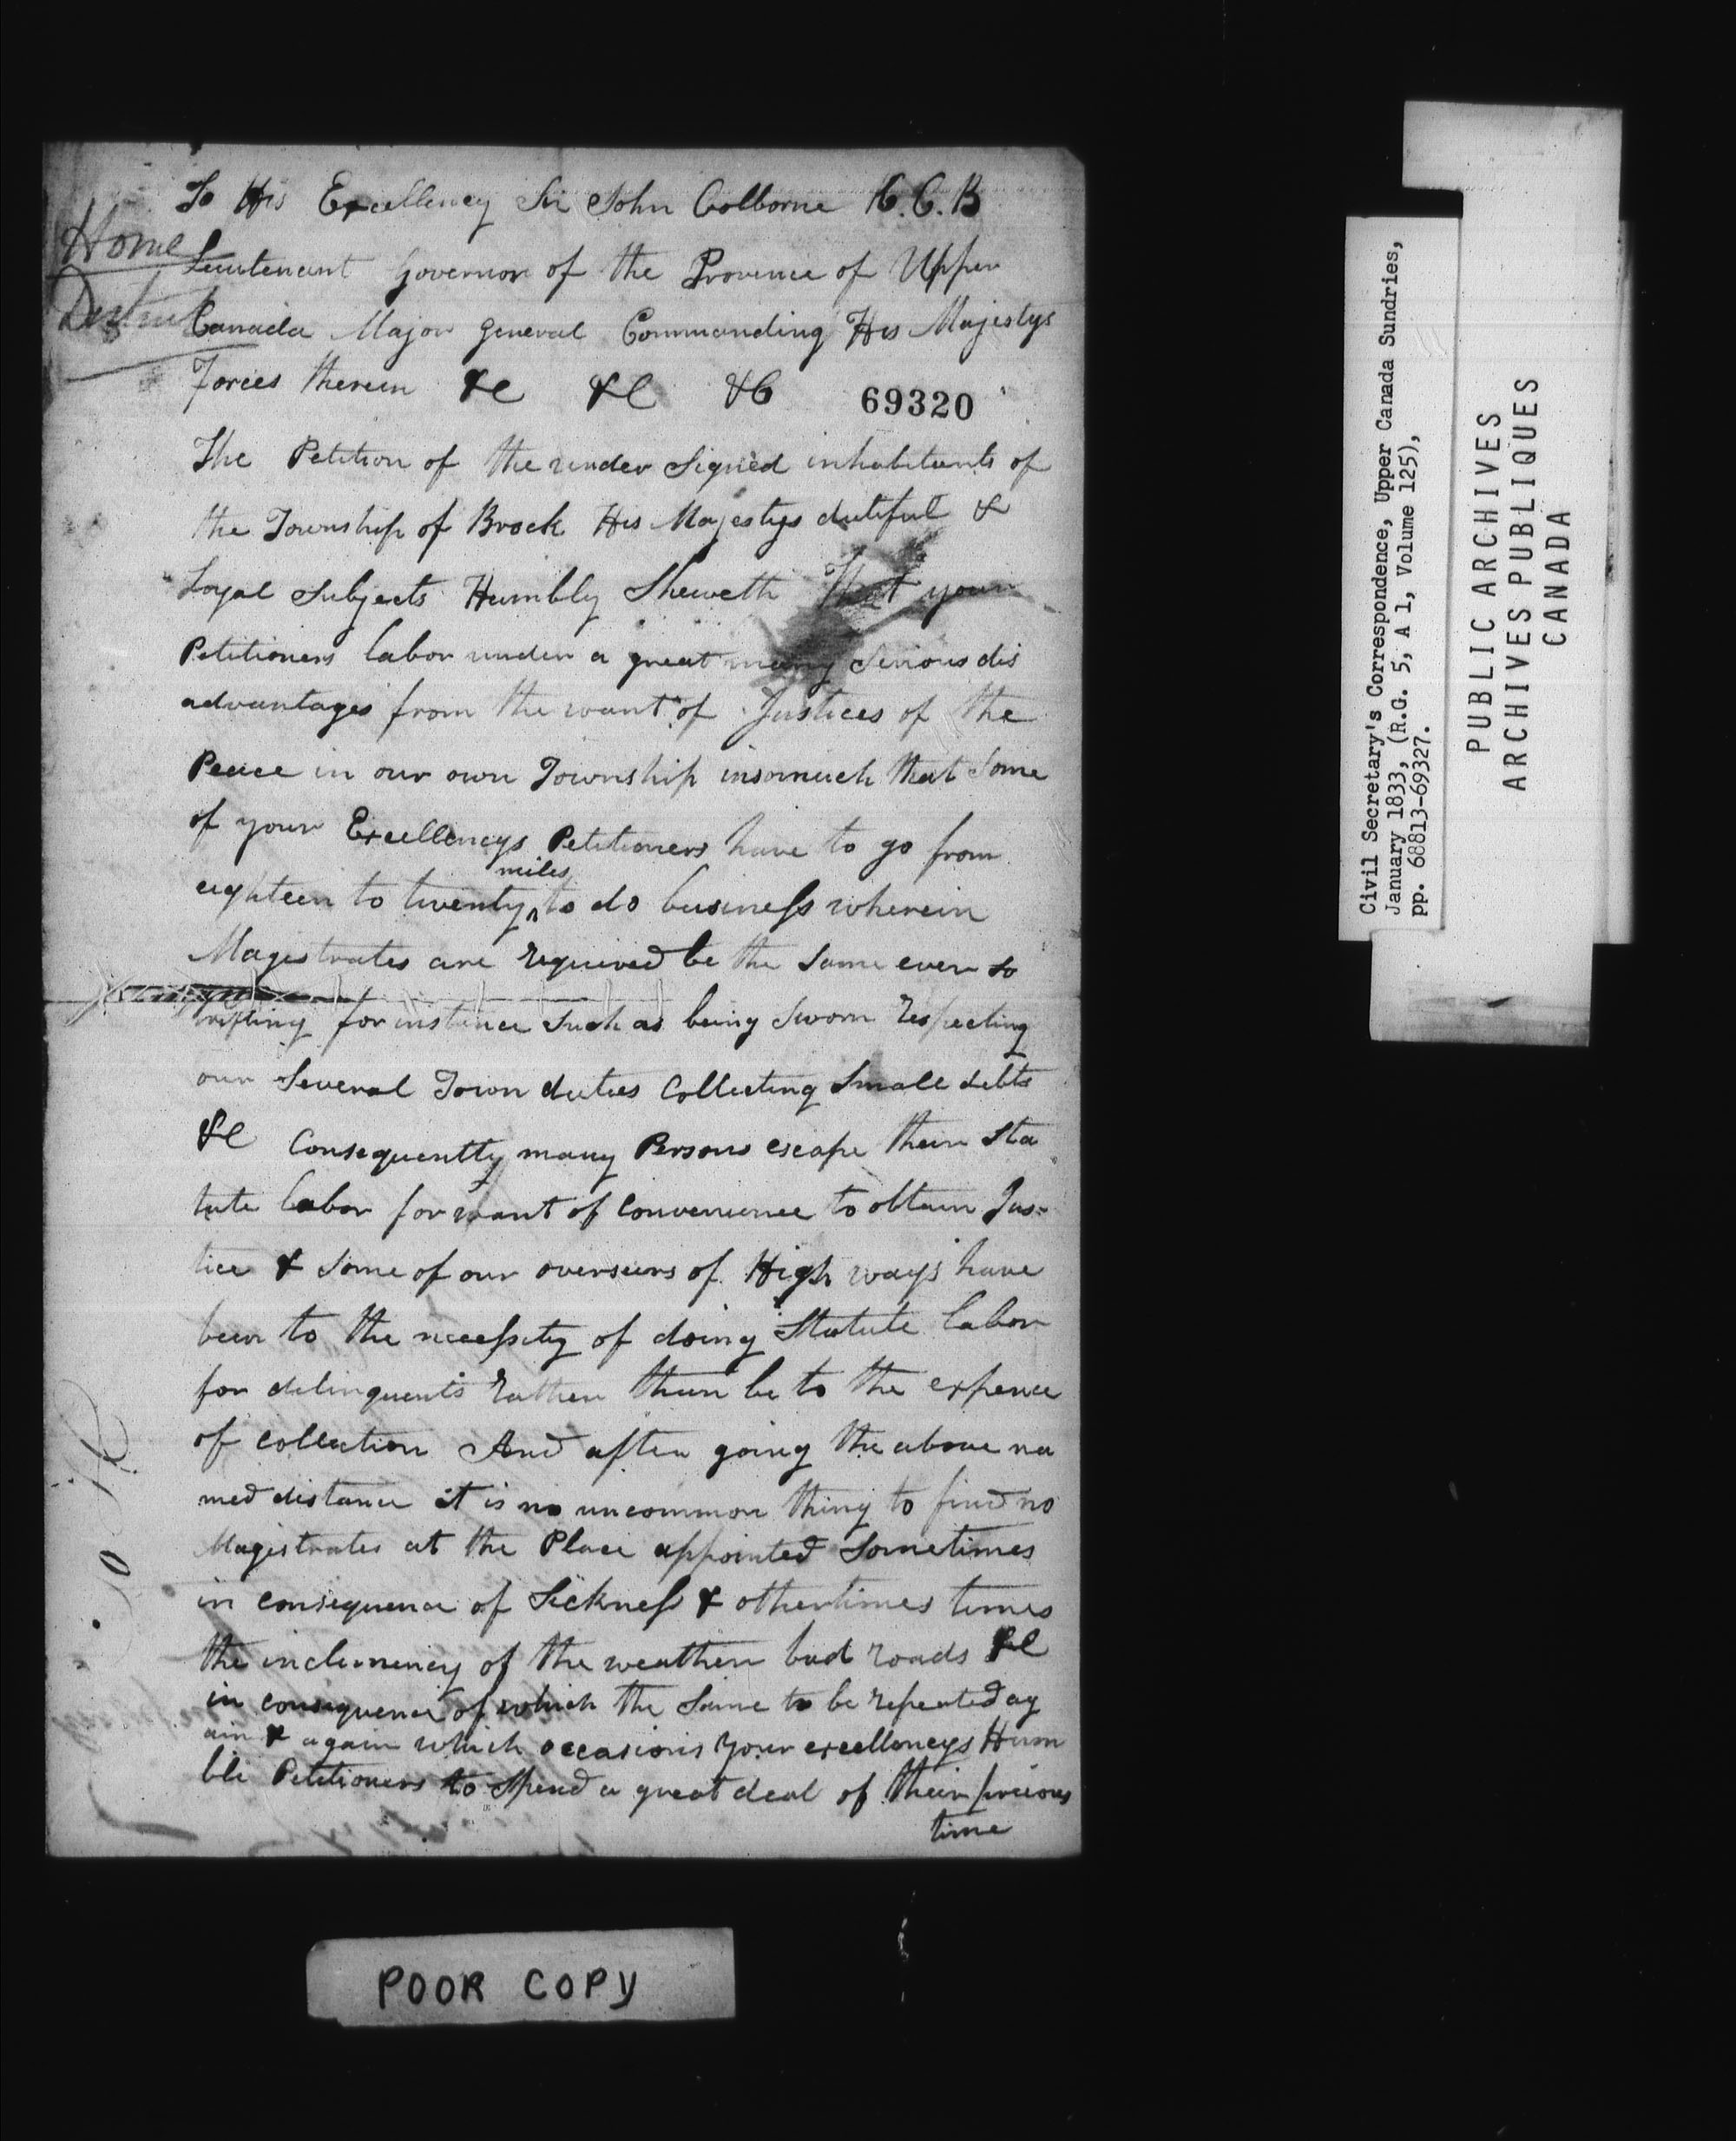 To His Excellency Sir John Colborne K.C.B
Home
District
Lieutenant Governor of the Province of Upper
Canada Major General Commanding His Majestys
Forces therein &c &c &c
69320
The Petition of the under Signed inhabitants of
the Township of Brock His Majestys dutiful &
Loyal Subjects Humbly Sheweth That your
Petitioners labor under a great many Serious dis
advantages from the want of Justices of the
Peace in our own Township insomuch that Some
of your Excellencys Petitioners have to go from
miles
eighteen to twenty ^ to do business wherein
Magistrates are required be the Same ever so
trifling for instance Such as being Sworn Respecting
our Several Town duties Collecting Small debts
&c Consequently many Persons escape their Sta
tute labor for want of Convenience to obtain Jus=
tice & Some of our overseers of High ways have
been to the necessity of doing Statute labor
for delinquents Rather than be to the expence
of collection And after going the above na
med distance it is no uncommon thing to find no
Magistrates at the Place appointed Sometimes
in consequence of Sickness & othertimes times
the inclemency of the weather bad roads &c
in consequence of which the Same to be repeated ag
ain & again which occasions your excellencys Hum
ble Petitioners to Spend a great deal of their precious
time
POOR COPY
Civil Secretary's Correspondence, Upper Canada Sundries,
January 1833, (R.G. 5, A 1, Volume 125),
pp. 68813-69327.
PUBLIC ARCHIVES
ARCHIVES PUBLIQUES
CANADA